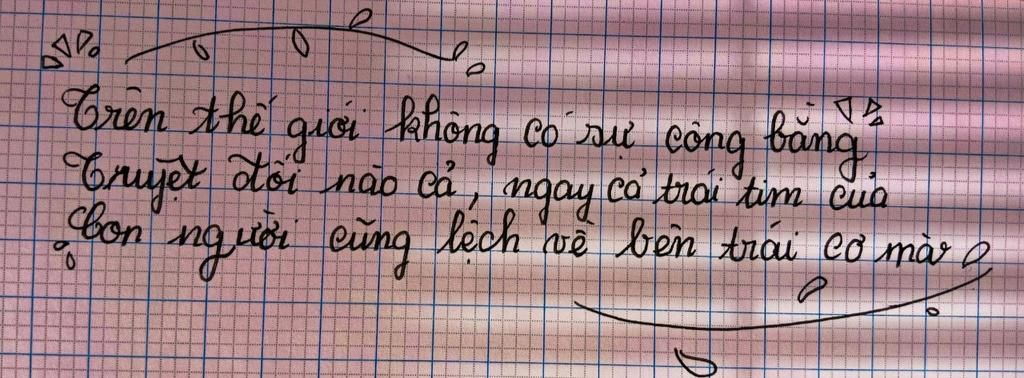 Trên thế giới không có sự công bằng
Truyệt đối nào cả, ngay cả trái tim của
Con người cũng lệch về bên trái cơ mà